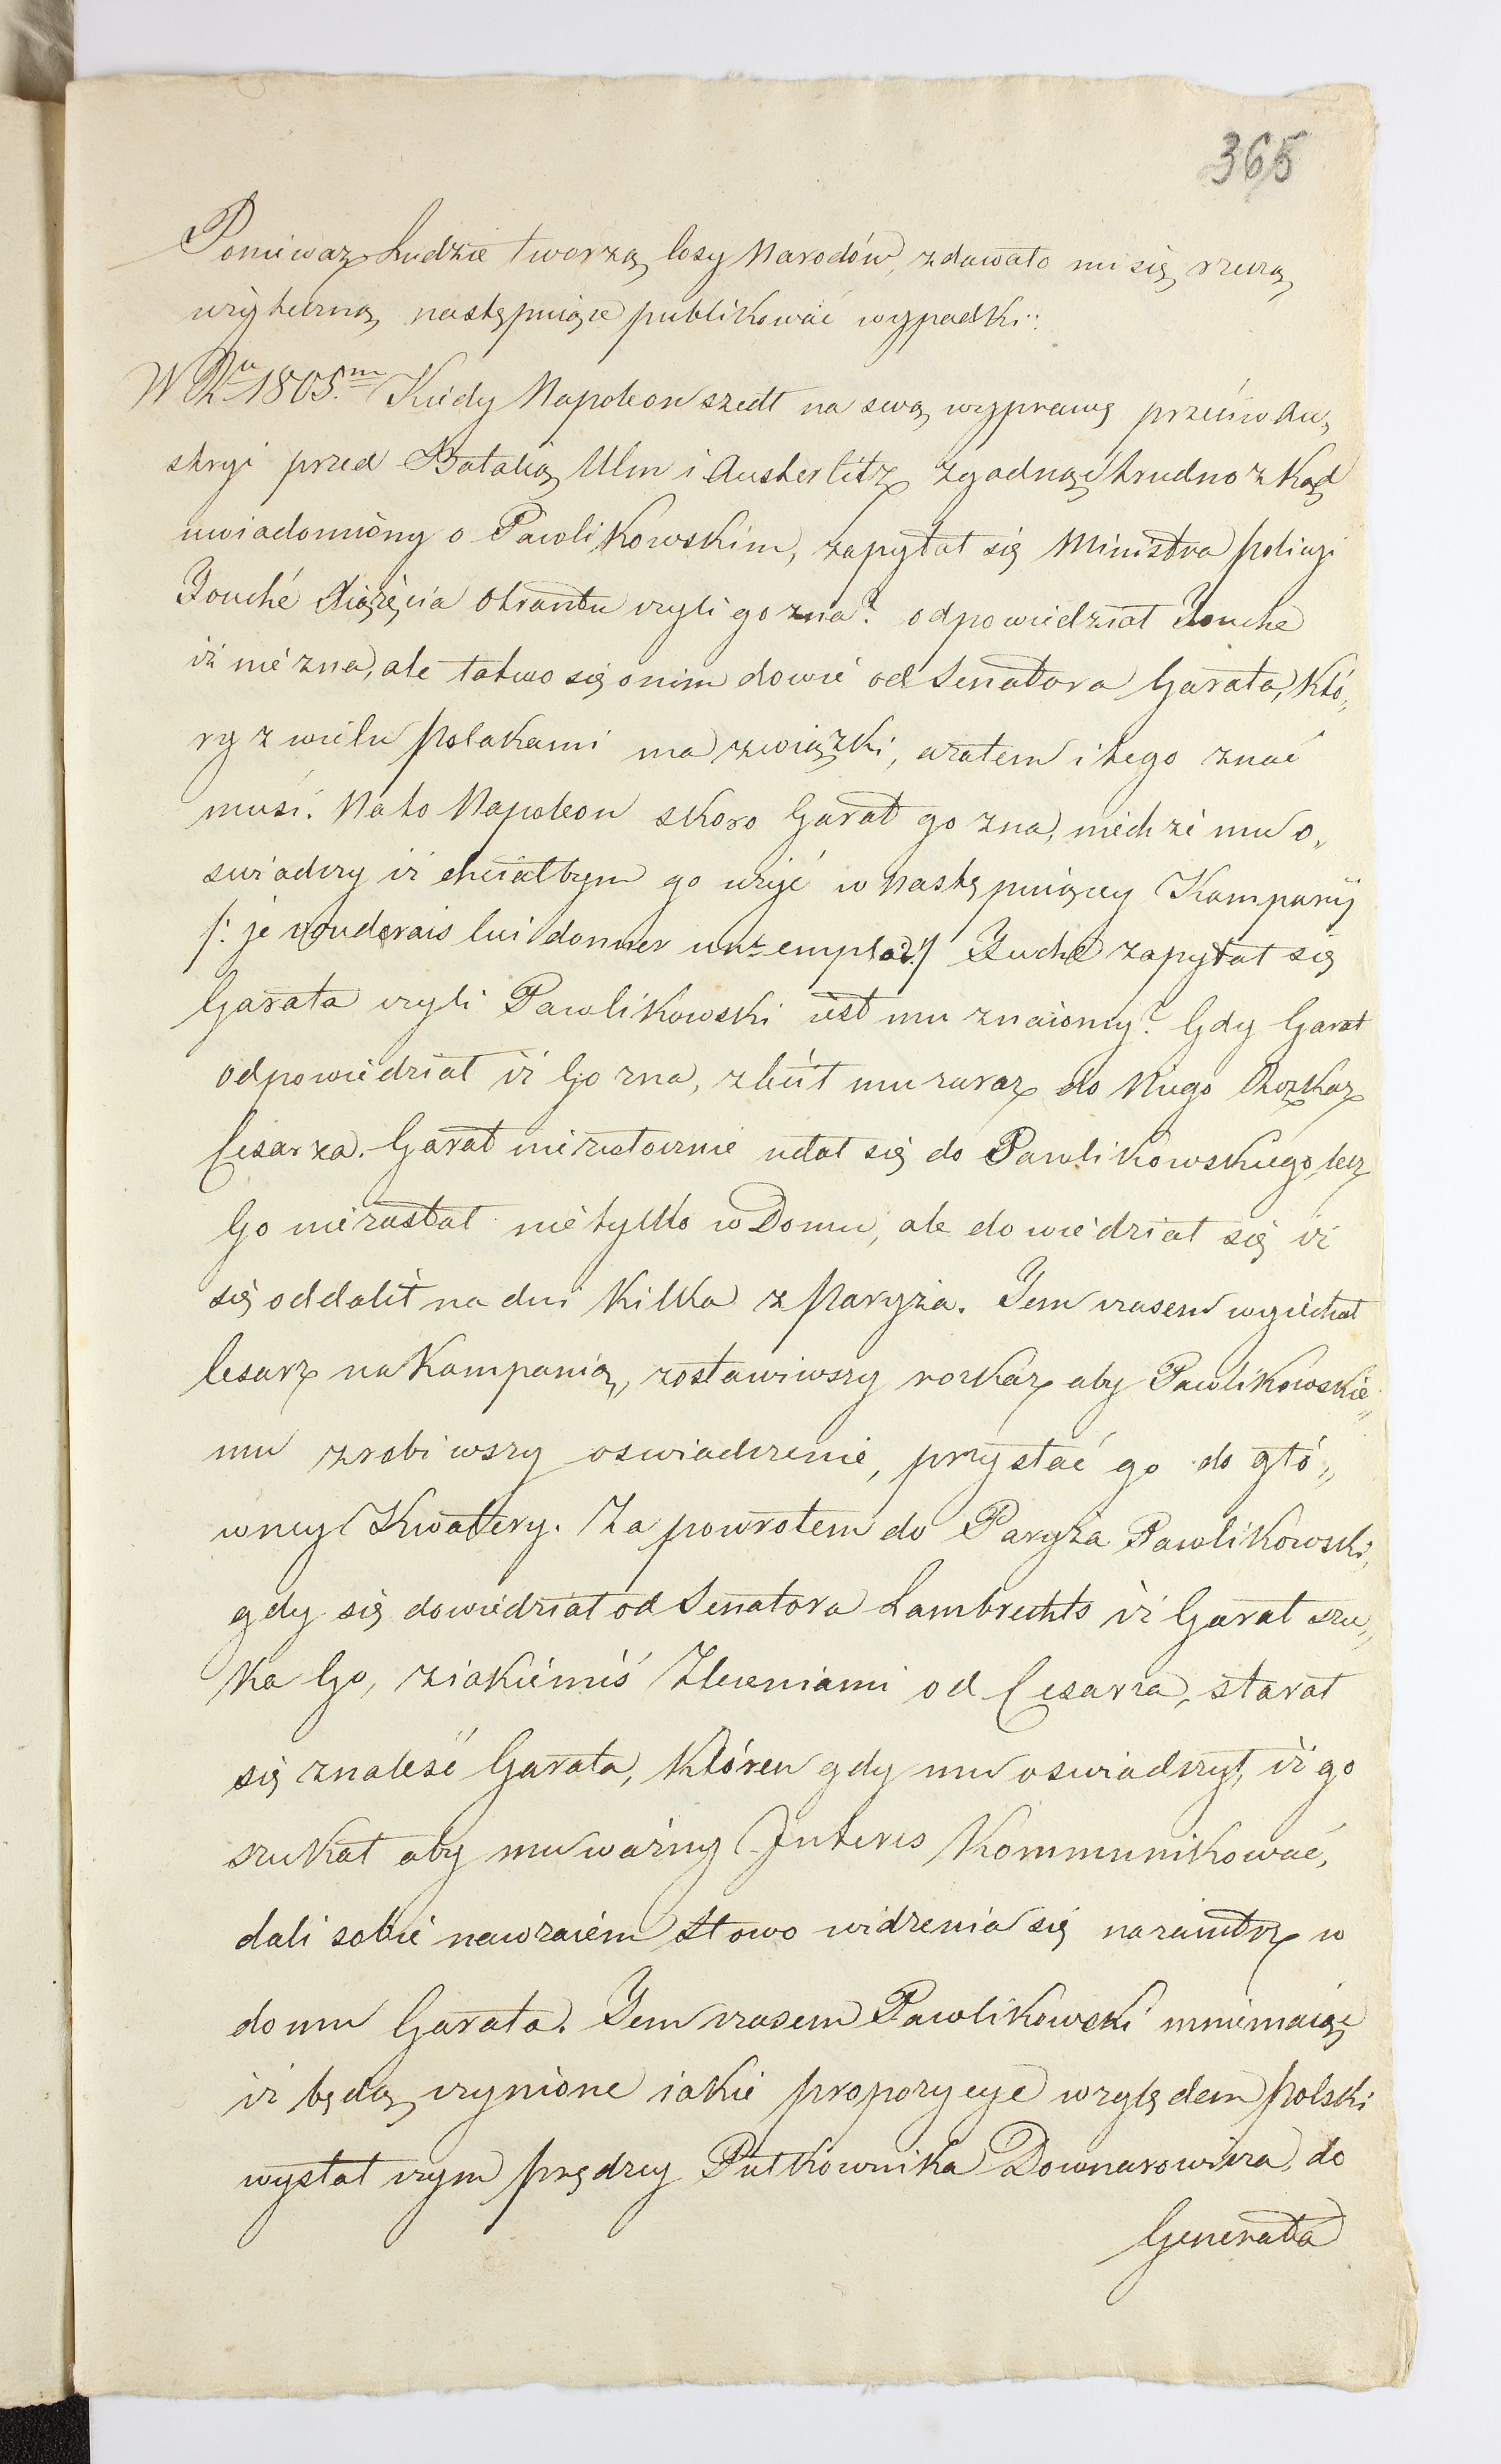 365
Poniewaz Ludzie tworzą losy Narodów, zdawało mi się rzeczą
użyteczną następuiące publikować wypadki:
W Ru 1805.m Kiedy Napoleon szedł na swą wyprawę przeciw Au„
stryi przed Batalią Ulm i Austerlitz zgadnąć trudno z kąd
uwiadomiony o Pawlikowskim, zapytał się Ministra policyi
Fouché Xiążęcia Otrantu czyli go zna? odpowiedział Fouche
iż nie zna, ale łatwo się o nim dowie od Senatora Garata, któ„
ry z wielu Polakami ma związki, azatem i tego znać
musi. Na to Napoleon skoro Garat go zna, niechże mu o„
swiadczy iż chciałbym go użyć w następuiącey Kampanij
/: je vouderais lui donner un emploi :/ Fuche zapytał się
Garata czyli Pawlikowski iest mu znaiomy? Gdy Garat
odpowiedział iż Go zna, zlecił mu zaraz do Niego Rozkaz
Cesarza. Garat niezwłocznie udał się do Pawlikowskiego, lecz
Go niezastał nietylko w Domu, ale dowiedział się iż
się oddalił na dni kilka z Paryża. Tem czasem wyiechał
Cesarz na Kampanią, zostawiwszy rozkaz aby Pawlikowskie„
mu zrobiwszy oswiadczenie, przysłać go do głó„
wney Kwatery. Za powrotem do Paryża Pawlikowski,
gdy się dowiedział od Senatora Lambrechts iż Garat szu„
ka Go, z iakiemiś Zleceniami od Cesarza, starał
się znaleść Garata, któren gdy mu oswiadczył, iż go
szukał aby mu ważny Interes Kommunikować,
dali sobie nawzaiem słowo widzenia się nazaiutrz w
domu Garata. Tem czasem Pawlikowski mniemaiąc
iż będą czynione iakie propozycye względem Polski
wysłał czym prędzey Pułkownika Downarowicza, do
Generała